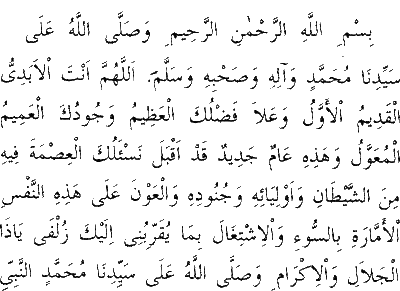 بِسْمِ اللَّهِ الرَّحْمٰنِ الرَّحِيمِ وَصَلَّى اللَّهُ عَلَى
سَيِّدِنَا مُحَمَّدٍ وَآلِهِ وَصَحْبِهِ وَسَلَّمَ. اَللَّهُمَّ اَنْتَ الْاَبَدِىُّ
الْقَدِيمُ الْأَوَّلُ وَعَلَا فَضْلُكَ الْعَظِيمُ وَجُودُكَ الْعَمِيمُ
الْمُعَوَّلُ وَهَذِهِ عَامٌ جَدِيدٌ قَدْ اَقْبَلَ نَسْئَلُكَ الْعِصْمَةَ فِيهِ
مِنَ الشَّيْطَانِ وَاَوْلِيَائِهِ وَجُنُودِهِ وَالْعَوْنَ عَلَى هَذِهِ النَّفْسِ
الْأَمَّارَةِ بِالسُّوءِ وَالْاِشْتِغَالَ بِمَا يُقَرِّبُنِى اِلَيْكَ زُلْفَى يَاذَا
الْجَلَالِ وَالْاِكْرَامِ وَصَلَّى اللَّهُ عَلَى سَيِّدِنَا مُحَمَّدٍ النَّبِيِّ